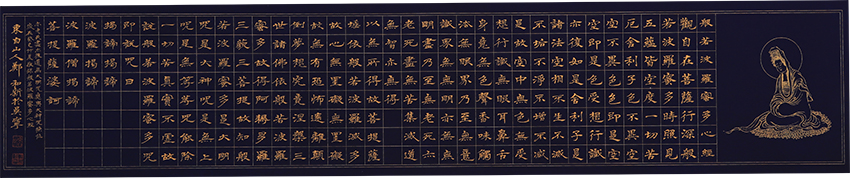 般若波羅蜜多心經
觀自在菩薩行深般
若波羅蜜多時照見
五蘊皆空度一切苦
厄舍利子色不異空
空不異色色即是空
空即是色受想行識
亦復如是舍利子是
諸法空相不生不滅
不垢不淨不增不減
是故空中無色無受
想行識無眼耳鼻舌
身意無色聲香味觸
法無眼界乃至無意
識界無無明亦無無
明盡乃至無老死亦無
老死盡無苦集滅道
無智亦無得
以無所得故菩提薩
埵依般若波羅蜜多
故心無罣礙無罣礙
故無有恐怖遠離顛
倒夢想究竟涅槃三
世諸佛依般若波羅
蜜多故得阿耨多羅
三藐三菩提故知般
若波羅蜜多是大明
咒是大神咒是無上
咒是無等等咒能除
一切苦真實不虛故
說般若波羅蜜多咒
即說咒曰
揭諦揭諦
波羅揭諦
波羅僧揭諦
菩提薩婆訶
東白山人鄭